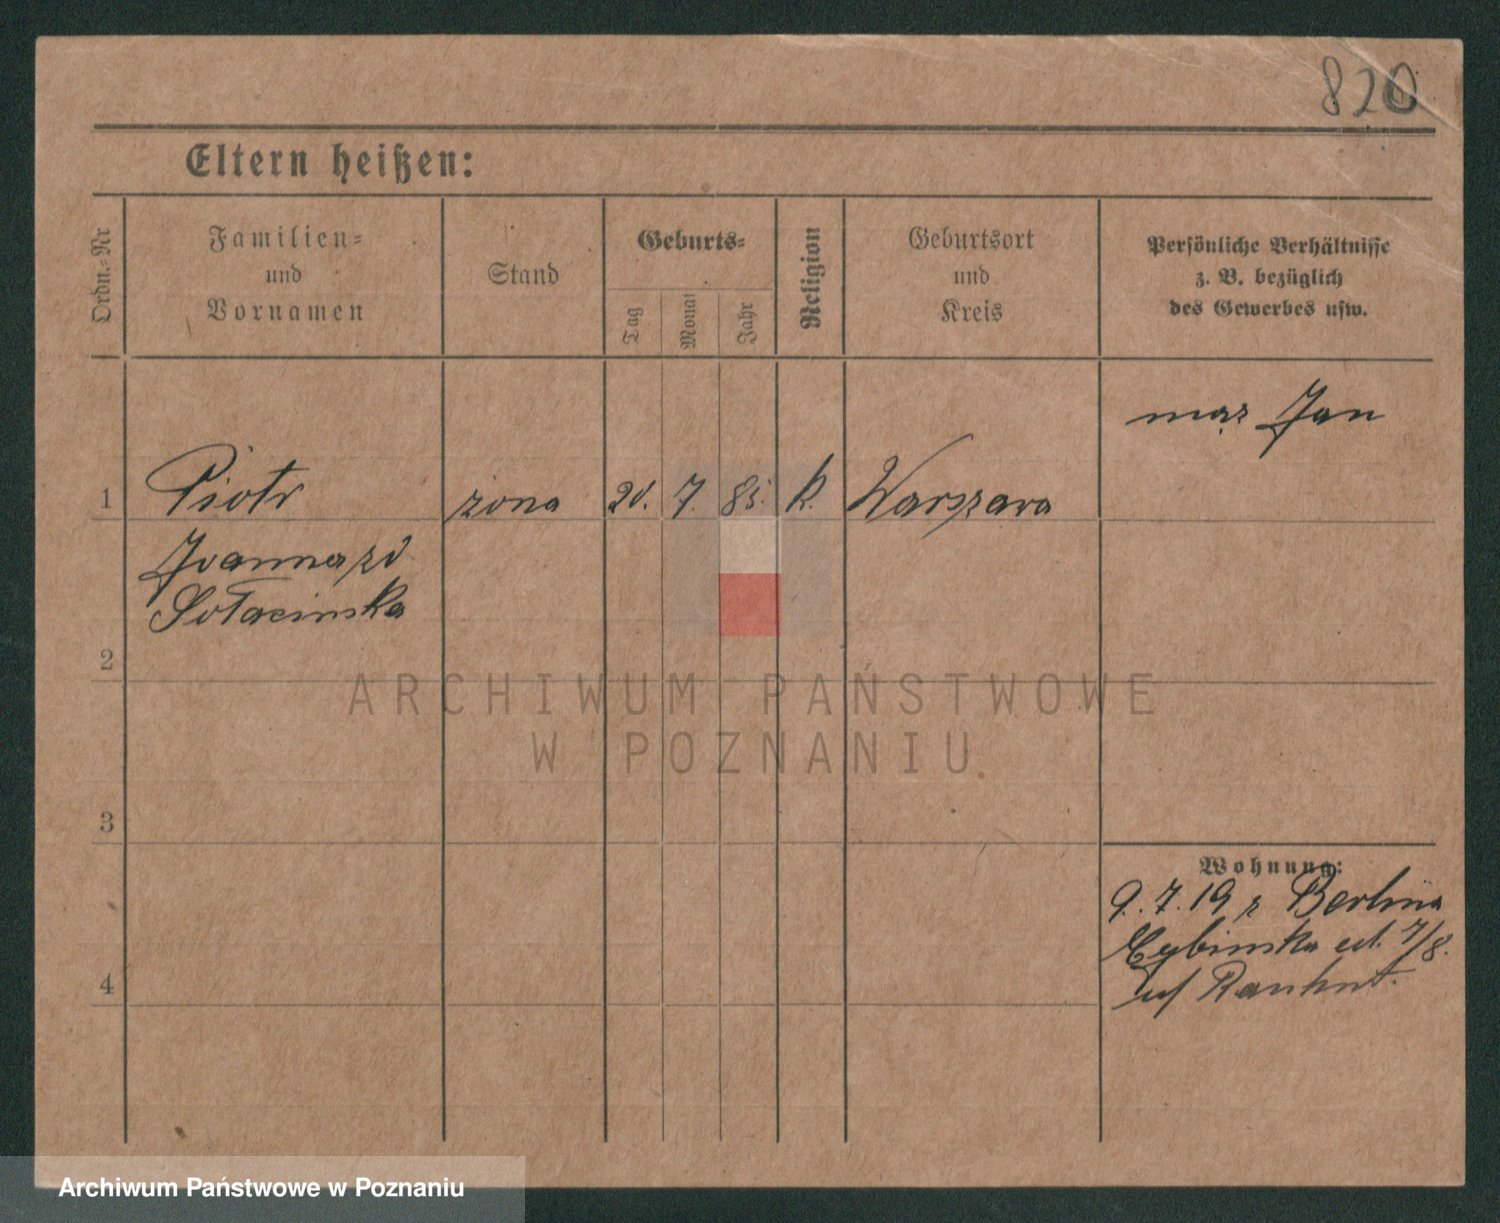 820
Eltern heißen:
Ordn.-Nr
Familien-
und
Vornamen
Stand
Geburts-
Tag
Monat
Jahr
Religion
Geburtsort
und
Kreis
Persönliche Verhältnisse
z. B. bezüglich
des Gewerbes usw.
mąz Jan
1 Piotr zona 20. 7. 85. k. Warszava
Joanna zd
Sołacinska
2
ARCHIWUM PAŃSTWOWE
W POZNANIU
3
Wohnung:
9. 7. 19 z Berlina
Cybinska 7/8.
4
Archiwum Państwowe w Poznaniu